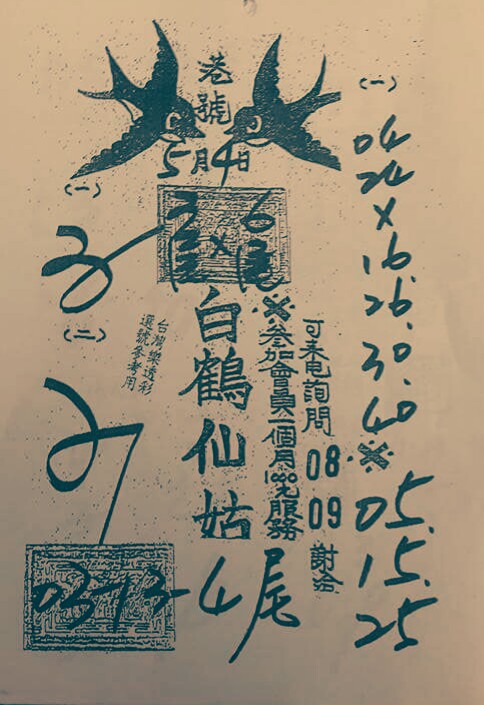 港號
5月4日
(一)
04
24
×
16.
26.
30.
40
※
05.
15.
25
可来电詢問 08 09 謝洽
※参加會員一個月1000元服務
白鶴仙姑
4尾
3 6
×
台灣樂透彩
選號參考用
(一)
3
(二)
03-13-